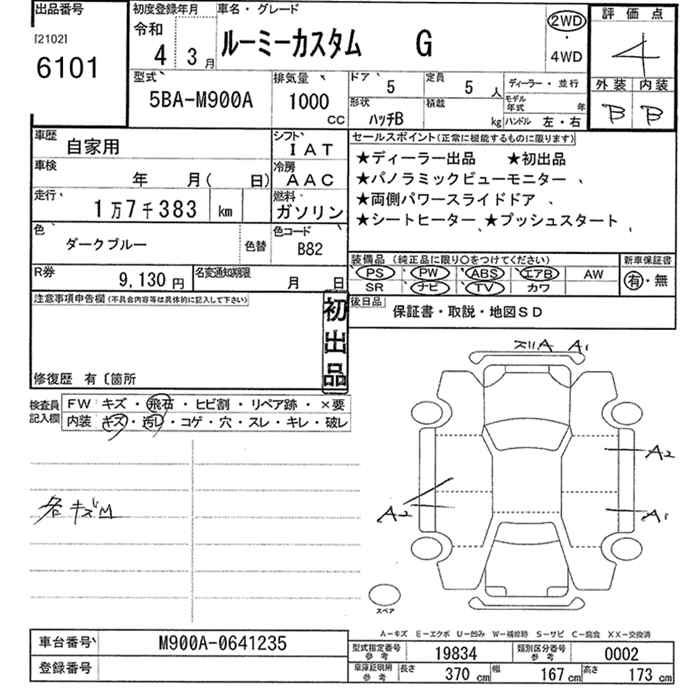 出品番号
[2102]
6101
初度登録年月
令和
4 3月
車名・グレード
ルーミーカスタム G
2WD
・
4WD
評価点
4
外装 内装
B B
型式
5BA-M900A
排気量
1000
CC
ドア 5
定員 5人
ディーラー・並行
形状
ハッチB
積載 kg
モデル年式 年
ハンドル 左・右
車歴 自家用
シフト IAT
車検 年 月( 日)
冷房 AAC
走行 1万7千383 km
燃料 ガソリン
色 ダークブルー 色替
色コード B82
R券 9,130円
名変通知期限 月 日
セールスポイント(正常に機能するものに限ります)
★ディーラー出品 ★初出品
★パノラミックビューモニター
★両側パワースライドドア
★シートヒーター ★プッシュスタート
装備品 (純正品に限り〇をつけてください)
新車保証書
PS PW ABS エアB AW
SR ナビ TV カワ
有・無
後日品
保証書・取説・地図SD
注意事項申告欄(不具合内容等は具体的に記入して下さい)
初出品
修復歴 有〔箇所
検査員記入欄
FW キズ・飛石・ヒビ割・リペア跡・×要
内装 キズ・汚レ・コゲ・穴・スレ・キレ・破レ
各キズM
スリA A1
A2
A2
A1
スペア
A-キズ E-エクボ U-凹み W-補修跡 S-サビ C-腐食 XX-交換済
車台番号 M900A-0641235
登録番号
型式指定番号 参考 19834
類別区分番号 参考 0002
車庫証明用 参考 長さ 370 cm 幅 167 cm 高さ 173 cm